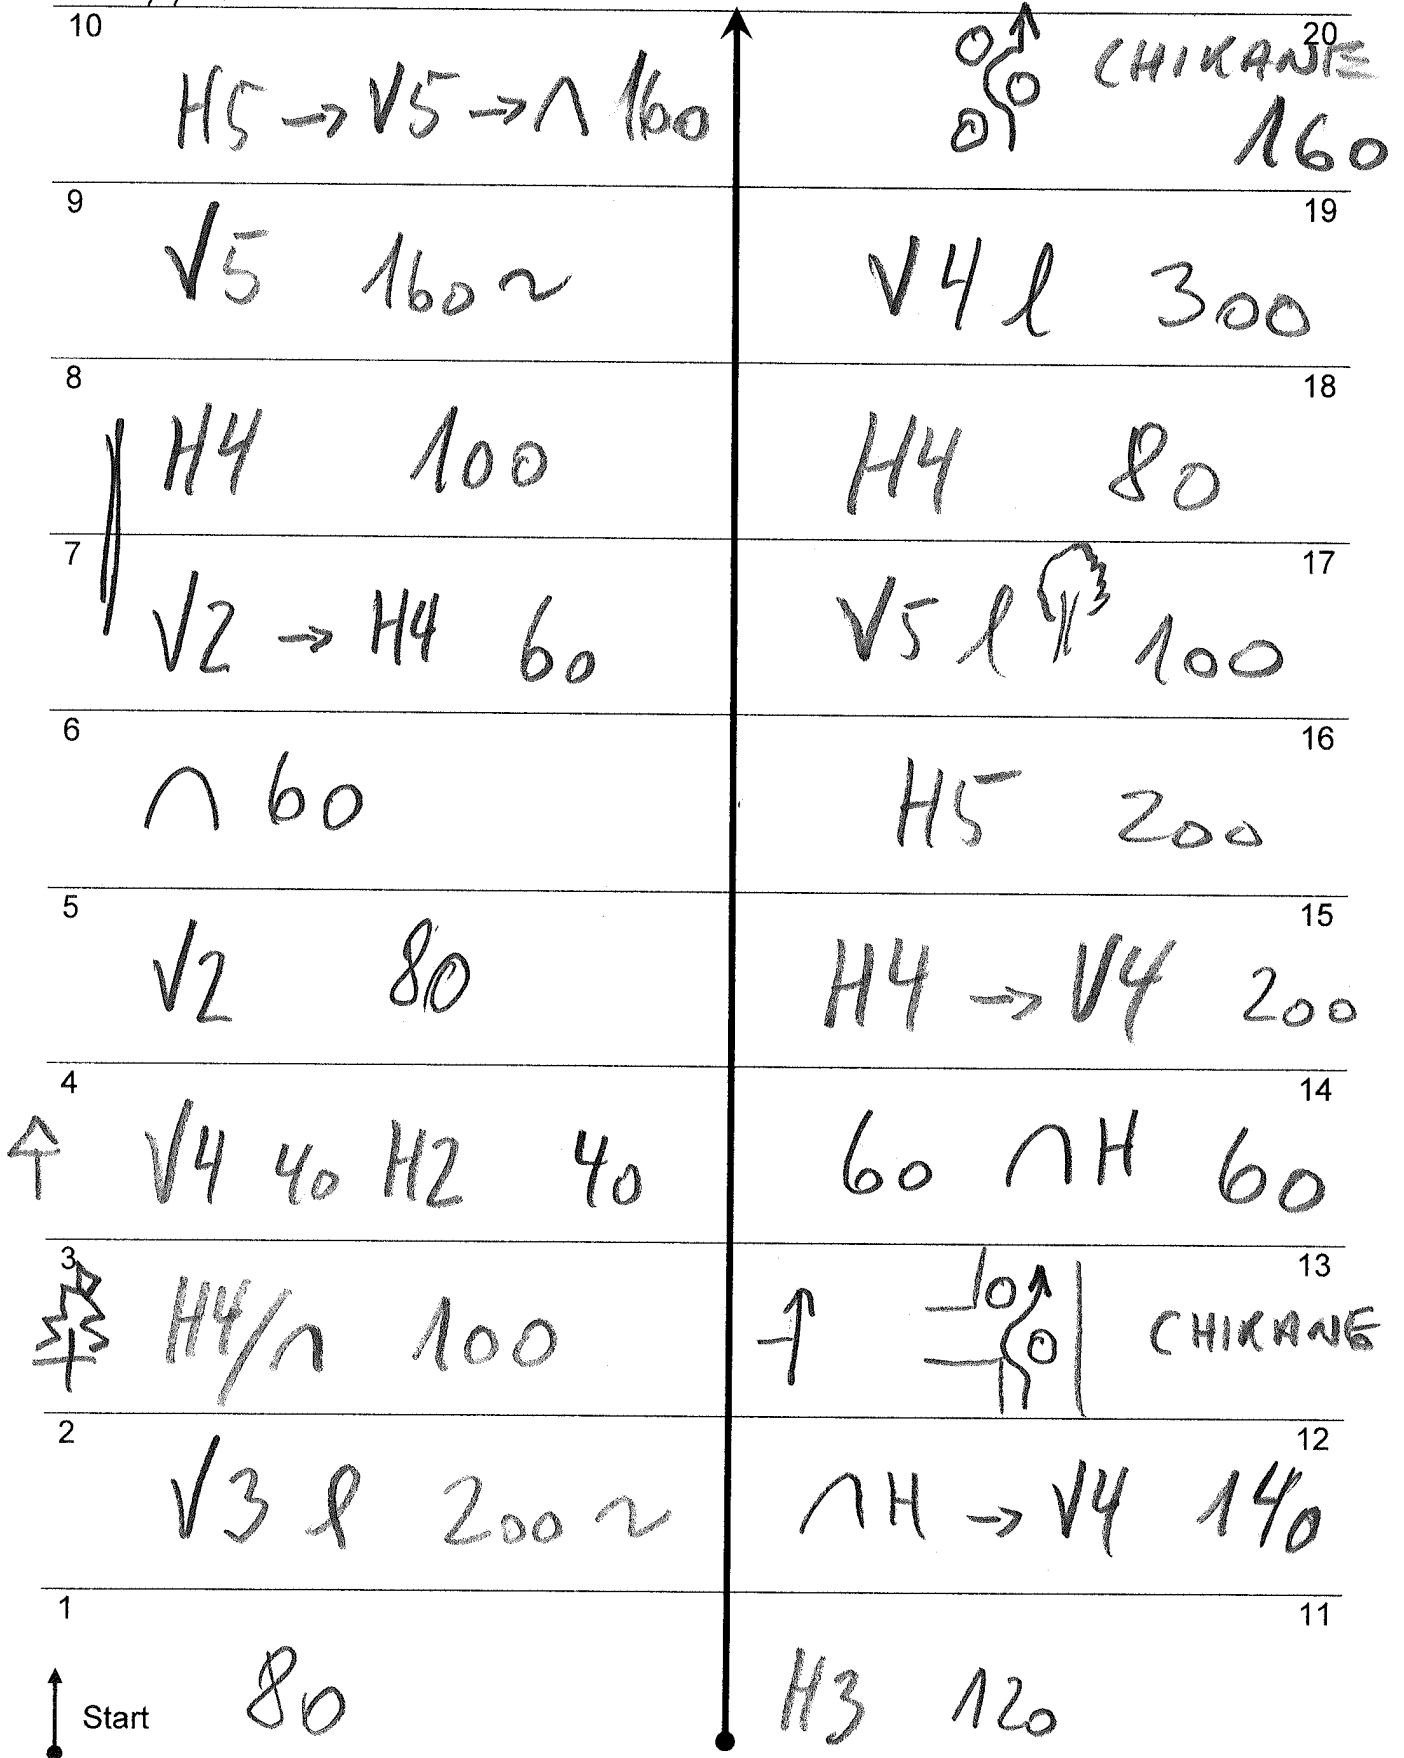 10
H5 → V5 → ∩ 160
9
V5 160 ~
8
H4 100
7
V2 → H4 60
6
∩ 60
5
V2 80
4
V4 40 H2 40
3
H4/∩ 100
2
V3 l 200 ~
1
80
Start
20
CHIKANE
160
19
V4 l 300
18
H4 80
17
V5 l 100
16
H5 200
15
H4 → V4 200
14
60 ∩H 60
13
CHIKANE
12
∩H → V4 140
11
H3 120